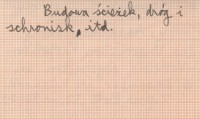 Budowa ścieżek, dróg i
schronisk, itd.